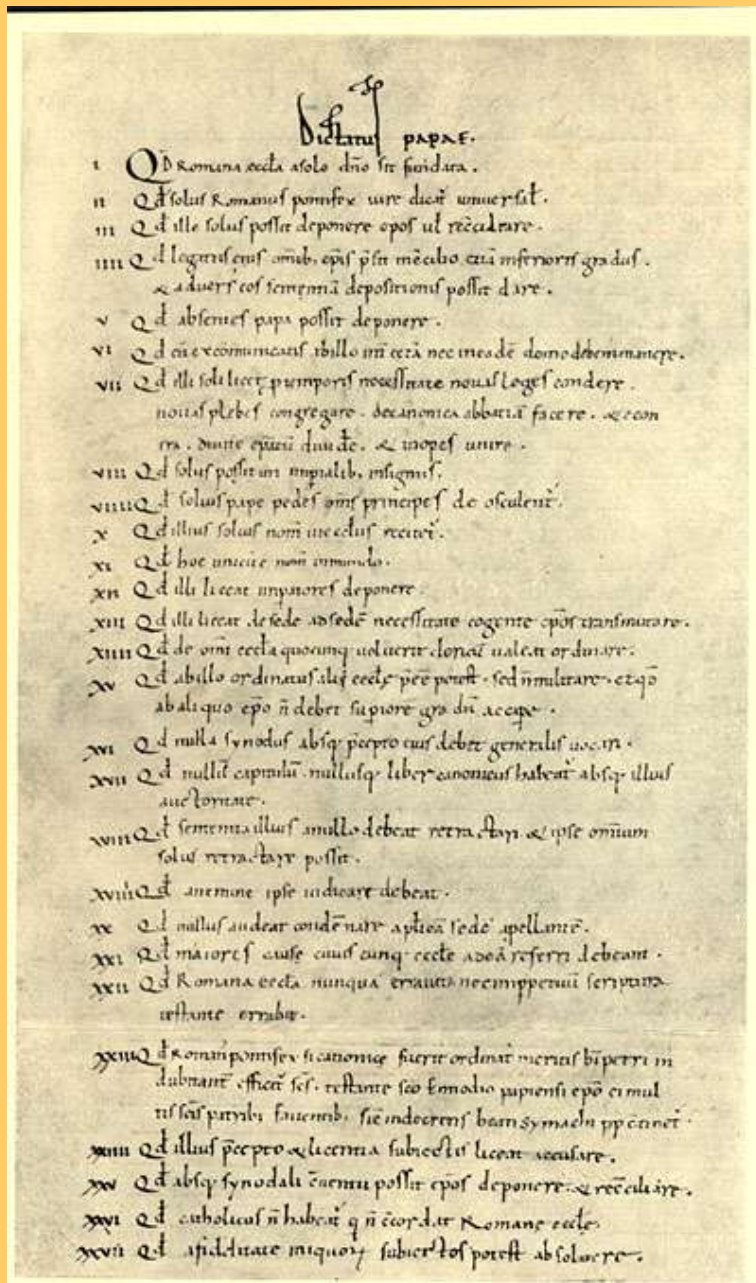 Dictatus papae.
I Qd Romana eccla a solo dno sit fundata.
II Qd solus Romanus pontifex iure dicat universal.
III Qd ille solus possit deponere epos ul recciliare.
IIII Qd legatus eius omib. epis psit in ccilio etia inferioris gradus.
& adversus eos sententia depositionis possit dare.
V Qd absentes papa possit deponere.
VI Qd cu excomunicatis ab illo int cetera nec in eade domo debemus manere.
VII Qd illi soli licet p temporis necessitate novas leges condere.
novas plebes congregare. de canonica abbatia facere. & econ
tra. divite epatu divide. & inopes unire.
VIII Qd solus possit uti impialib. insigniis.
VIIII Qd solius pape pedes oms principes deosculent.
X Qd illius solius nom in ecclis recitet.
XI Qd hoc unicu e nom in mundo.
XII Qd illi liceat impatores deponere.
XIII Qd illi liceat de sede ad sede necessitate cogente epos transmutare.
XIIII Qd de omi eccla quocunq voluerit clericu valeat ordinare.
XV Qd ab illo ordinatus alii eccle pee potest. sed n militare. et qd
ab aliquo epo n debet supiore gradu accipe.
XVI Qd nulla synodus absq pcepto eius debet generalis vocari.
XVII Qd nullu capitulu. nullusq liber canonicus habeat absq illius
auctoritate.
XVIII Qd sententia illius a nullo debeat retractari & ipse omnium
solus retractare possit.
XVIIII Qd a nemine ipse iudicare debeat.
XX Qd nullus audeat condenare aplica sede apellante.
XXI Qd maiores cause cuiuscunq eccle ad ea referri debeant.
XXII Qd Romana eccla nunqua erravit nec imppetuu scriptura
testante errabit.
XXIII Qd Roman pontifex si canonice fuerit ordinat meritis bi petri in
dubitant efficit scs. testante sco Ennodio papiensi epo ei mul
tis scis patribs faventib. sic in decretis beati symachi pp ctinet.
XXIIII Qd illius pcepto & licentia subiectis liceat accusare.
XXV Qd absq synodali cventu possit epos deponere & recciliare.
XXVI Qd catholicus n habeat q n ccordat Romane eccle.
XXVII Qd a fidelitate iniquor subiectos potest absolvere.